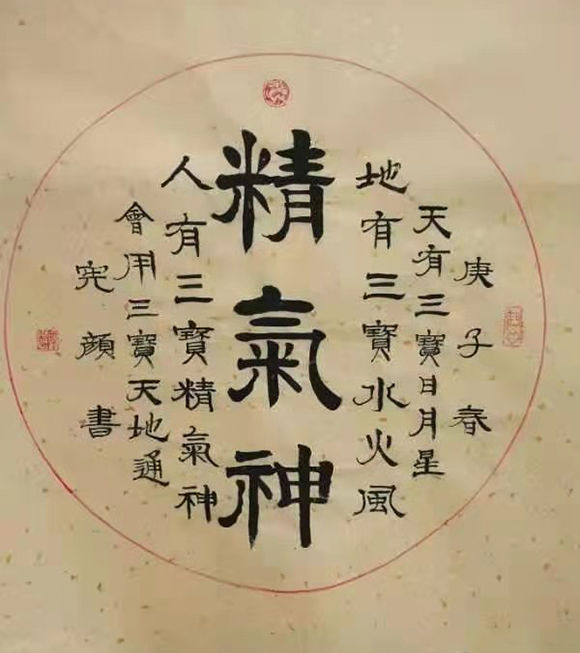 庚子春
天有三寳日月星
地有三寳水火風
精氣神
人有三寳精氣神
會用三寳天地通
宪顔書